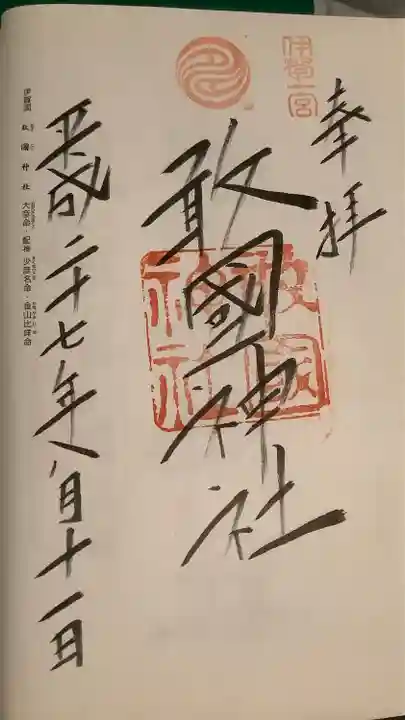 奉拝
伊賀一宮
敢國神社
敢國神社
平成二十七年八月十一日
伊賀國 敢國神社 大彦命・配神 少彦名命・金山比咩命